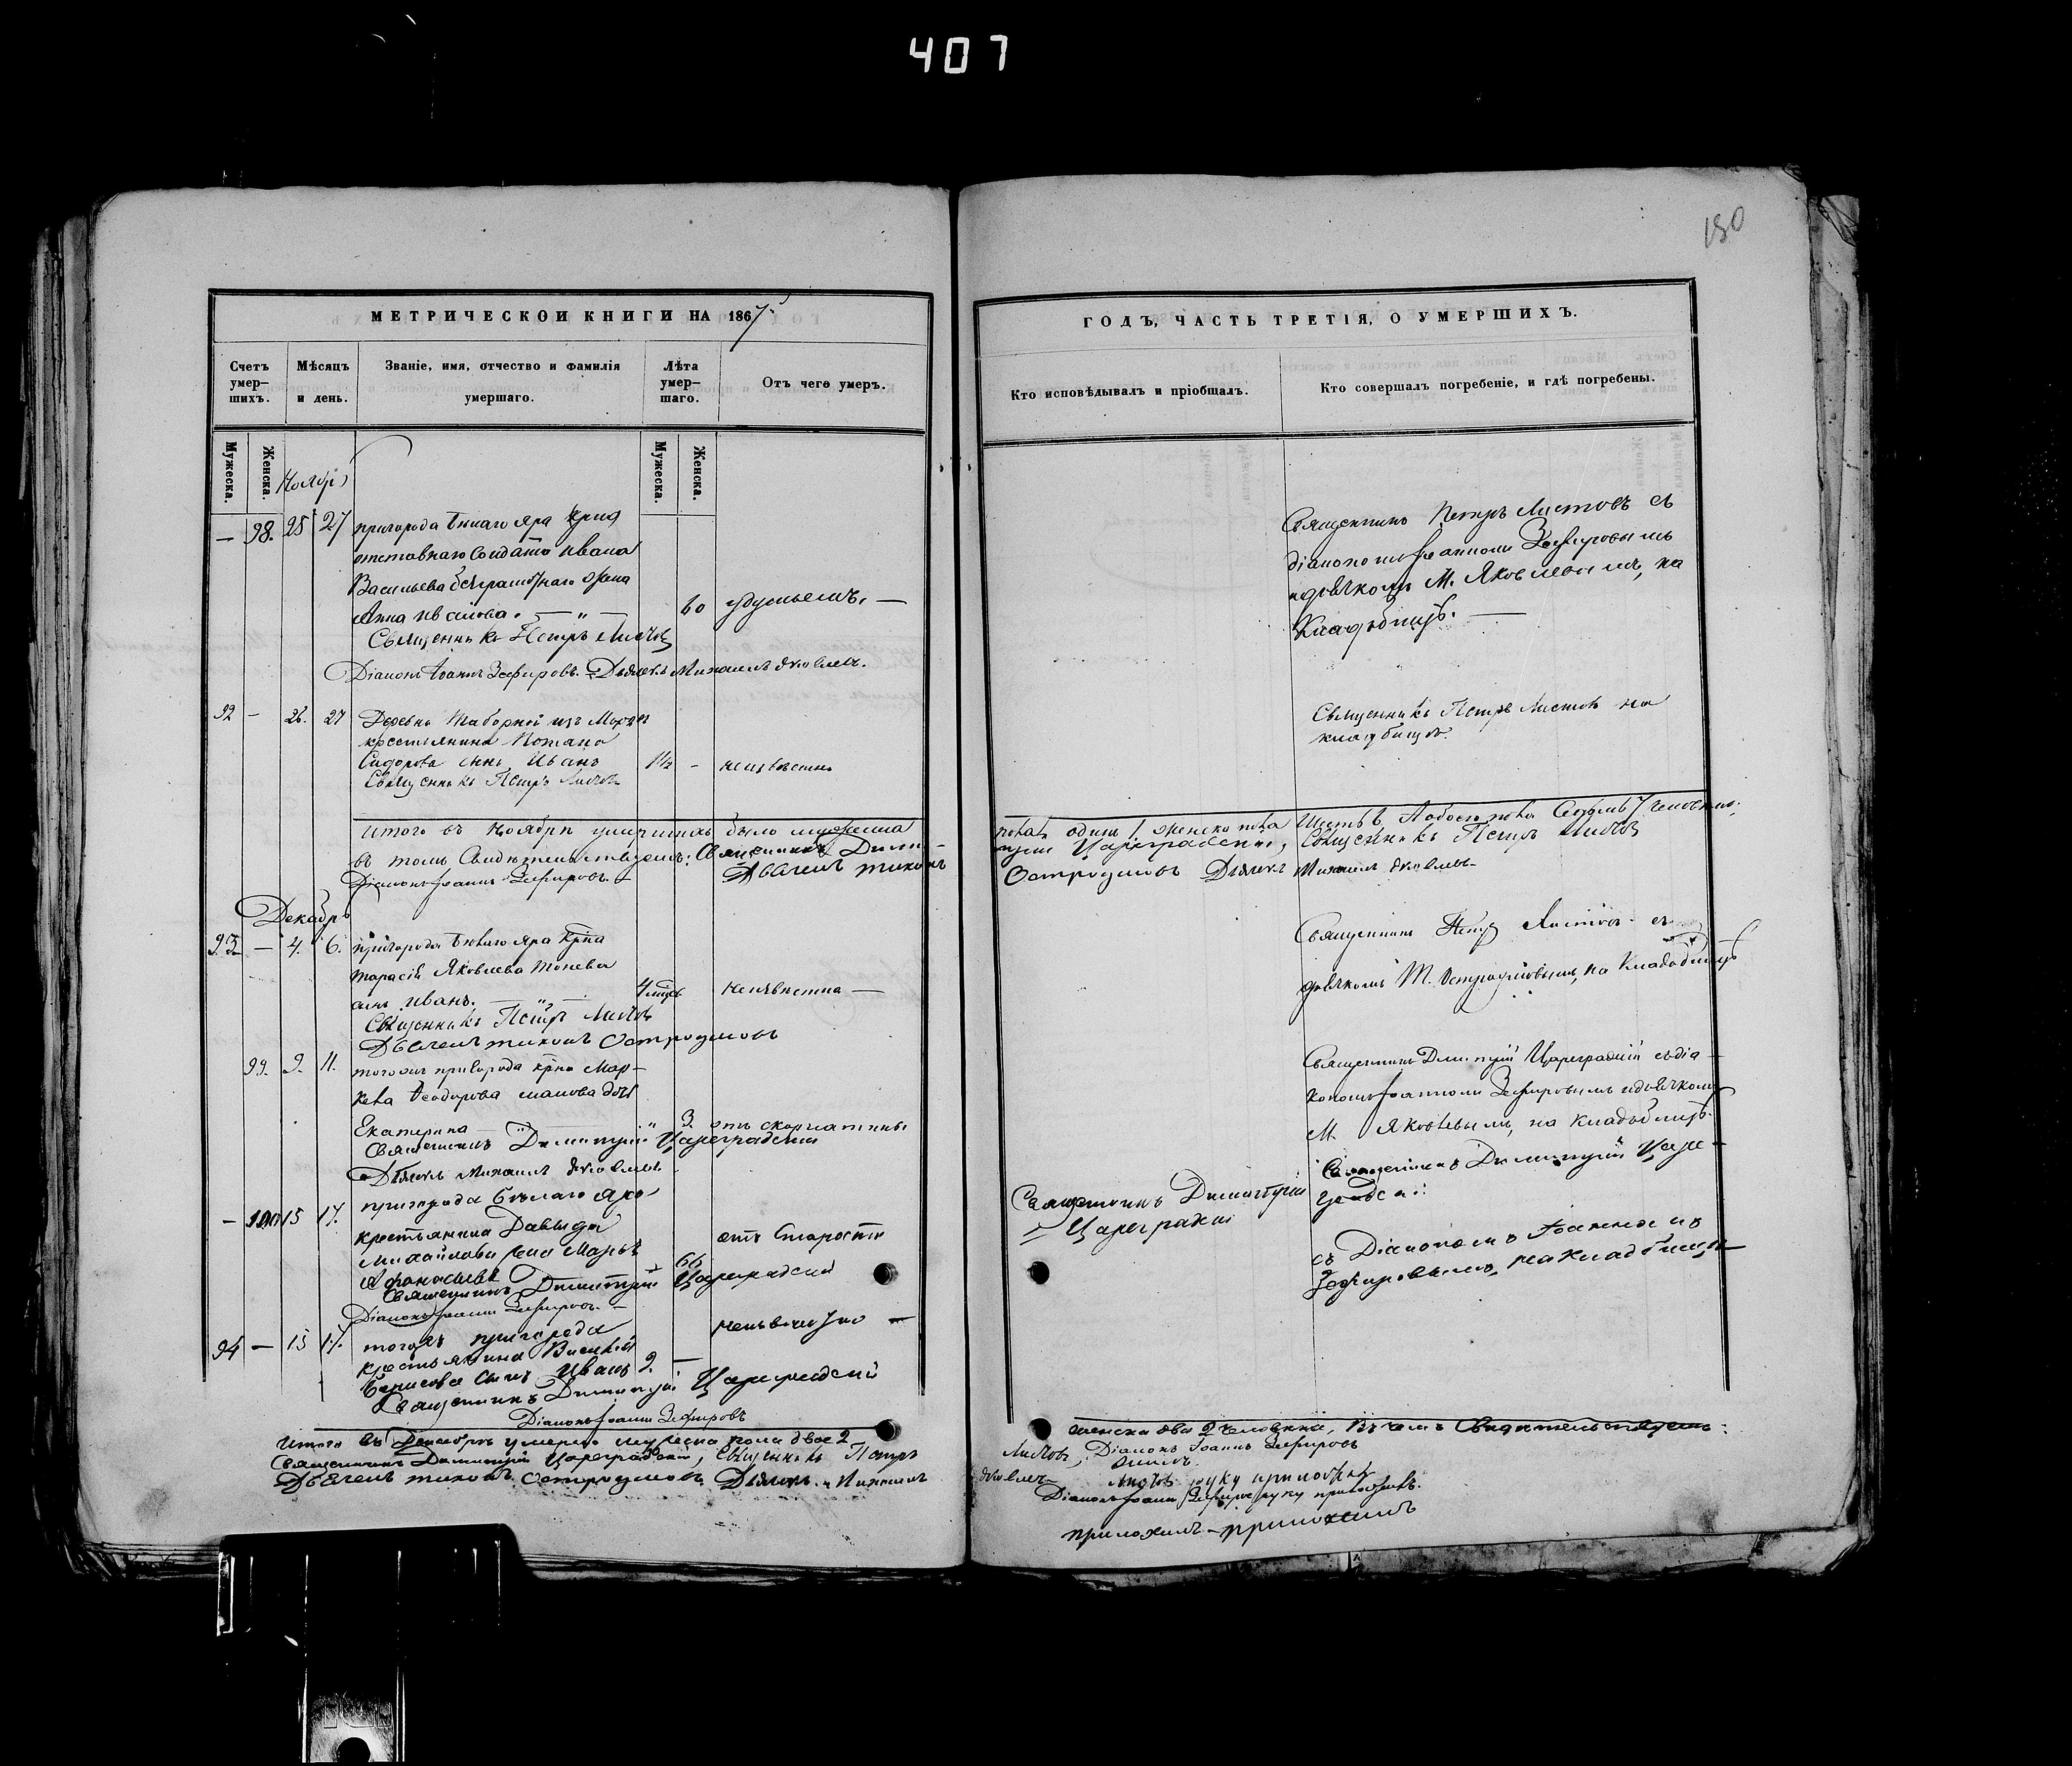 407
150
МЕТРИЧЕСКОЙ КНИГИ НА 1867
Счетъ умер-
шихъ.
Мѣсяцъ
и день.
Званіе, имя, отчество и фамилія
умершаго.
Лѣта
умер-
шаго.
Отъ чего умеръ.
Мужеска.
Женска.
Мужеска.
Женска.
Ноябрь
— 98. 25 27 пригорода Бѣлаго яра
отставнаго Солдата Ивана
Васильева жена
Анна Иванова. — " — 60 удушьемъ. —
Священникъ Петръ Листовъ
Діаконъ Іоаннъ Зефировъ. Дьячекъ Михаилъ Яковлевъ.
92 — 26. 27 Деревни
крестьянина
Сидорова сынъ Иванъ 1½ - неизвѣстно
Священникъ Петръ Листовъ
Итого въ Ноябрѣ умершихъ было мужеска
въ томъ Свидѣтельствуемъ: Священникъ Дими-
Діаконъ Іоаннъ Зефировъ. Дьячекъ Тихонъ
Декабрь
93 — 4. 6. пригорода Бѣлаго яра крна
Тарасія Яковлева
сынъ Иванъ. — " — неизвѣстно —
Священникъ Петръ Листовъ
Дьячекъ Тихонъ Остроумовъ
99. 9. 11. тогожъ пригорода крна Мар-
кела Ѳеодорова дочь
Екатерина " 3. отъ скарлатины
Священникъ Димитрій Цареградскій
Дьячекъ Михаилъ Яковлевъ
— 100 15 17. пригорода Бѣлаго Яра
крестьянина Давыда
Михайлова жена Марья
Афанасьева 66 отъ Старости
Священникъ Димитрій Цареградскій
Діаконъ Іоаннъ Зефировъ. —
94 — 15 17. тогожъ пригорода
крестьянина Василія
Борисова сынъ Иванъ 2. — неизвѣстно —
Священникъ Димитрій Цареградскій
Діаконъ Іоаннъ Зефировъ
Итого въ Декабрѣ умерло мужеска пола двое 2
Священникъ Димитрій Цареградскій, Священникъ Петръ
Дьячекъ Тихонъ Остроумовъ Дьячекъ Михаилъ
ГОДЪ, ЧАСТЬ ТРЕТІЯ, О УМЕРШИХЪ.
Кто исповѣдывалъ и пріобщалъ.
Кто совершалъ погребеніе, и гдѣ погребены.
Священникъ Петръ Листовъ съ
діакономъ Іоанномъ Зефировымъ
и дьячкомъ М. Яковлевымъ, на
Кладбищѣ. —
Священникъ Петръ Листовъ на
кладбищѣ.
пола одинъ 1, женска пола Шесть 6. А обоего пола Седмь 7 человѣкъ.
трій Цареградскій, Священникъ Петръ Листовъ
Остроумовъ Дьячекъ Михаилъ Яковлевъ
Священникъ Петръ Листовъ съ
дьячкомъ Т. Остроумовымъ, на Кладбищѣ
Священникъ Димитрій Цареградскій съ діа-
кономъ Іоанномъ Зефировымъ и дьячкомъ
М. Яковлевымъ, на кладбищѣ.
Священникъ Димитрій
Цареградскій
Священникъ Димитрій Царе-
градскій
съ Діакономъ Іоанномъ
Зефировымъ, на кладбищѣ
женска два 2 человѣка, Въ чемъ Свидѣтельствуемъ:
Листовъ, Діаконъ Іоаннъ Зефировъ
Яковлевъ
Листовъ руку приложилъ
Діаконъ Іоаннъ Зефировъ руку приложилъ.
приложилъ — приложилъ